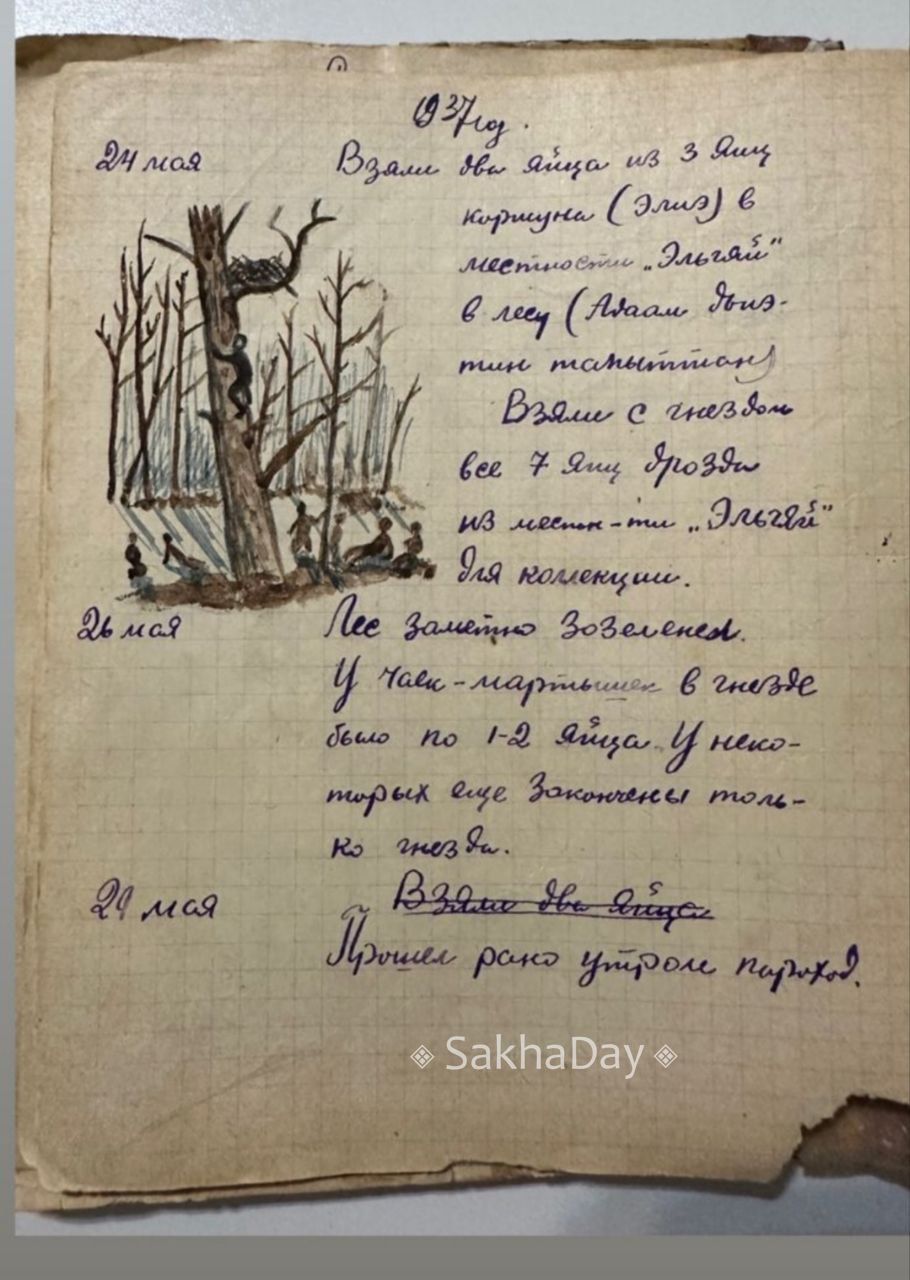 1937 год.
24 мая Взяли два яйца из 3 яиц
коршуна (Элиэ) в
местности „Эльгяй"
в лесу (Адаам дьиэ-
тин таһыттан)
Взяли с гнездом
все 7 яиц дрозда
из местн-ти „Эльгяй"
для коллекции.
26 мая Лес заметно зозеленел.
У чаек-мартышек в гнезде
было по 1-2 яйца. У неко-
торых еще закончены толь-
ко гнезда.
29 мая Взяли два яйца
Прошел рано утром пароход.
SakhaDay